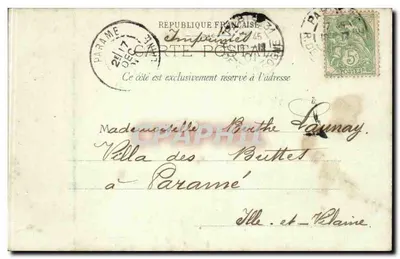 RÉPUBLIQUE FRANÇAISE
Imprimés
CARTE POSTALE
Ce côté est exclusivement réservé à l'adresse
PARAMÉ
17
DEC
Mademoiselle Berthe Launay
Villa des Buttes
à Paramé
Ille-et-Vilaine